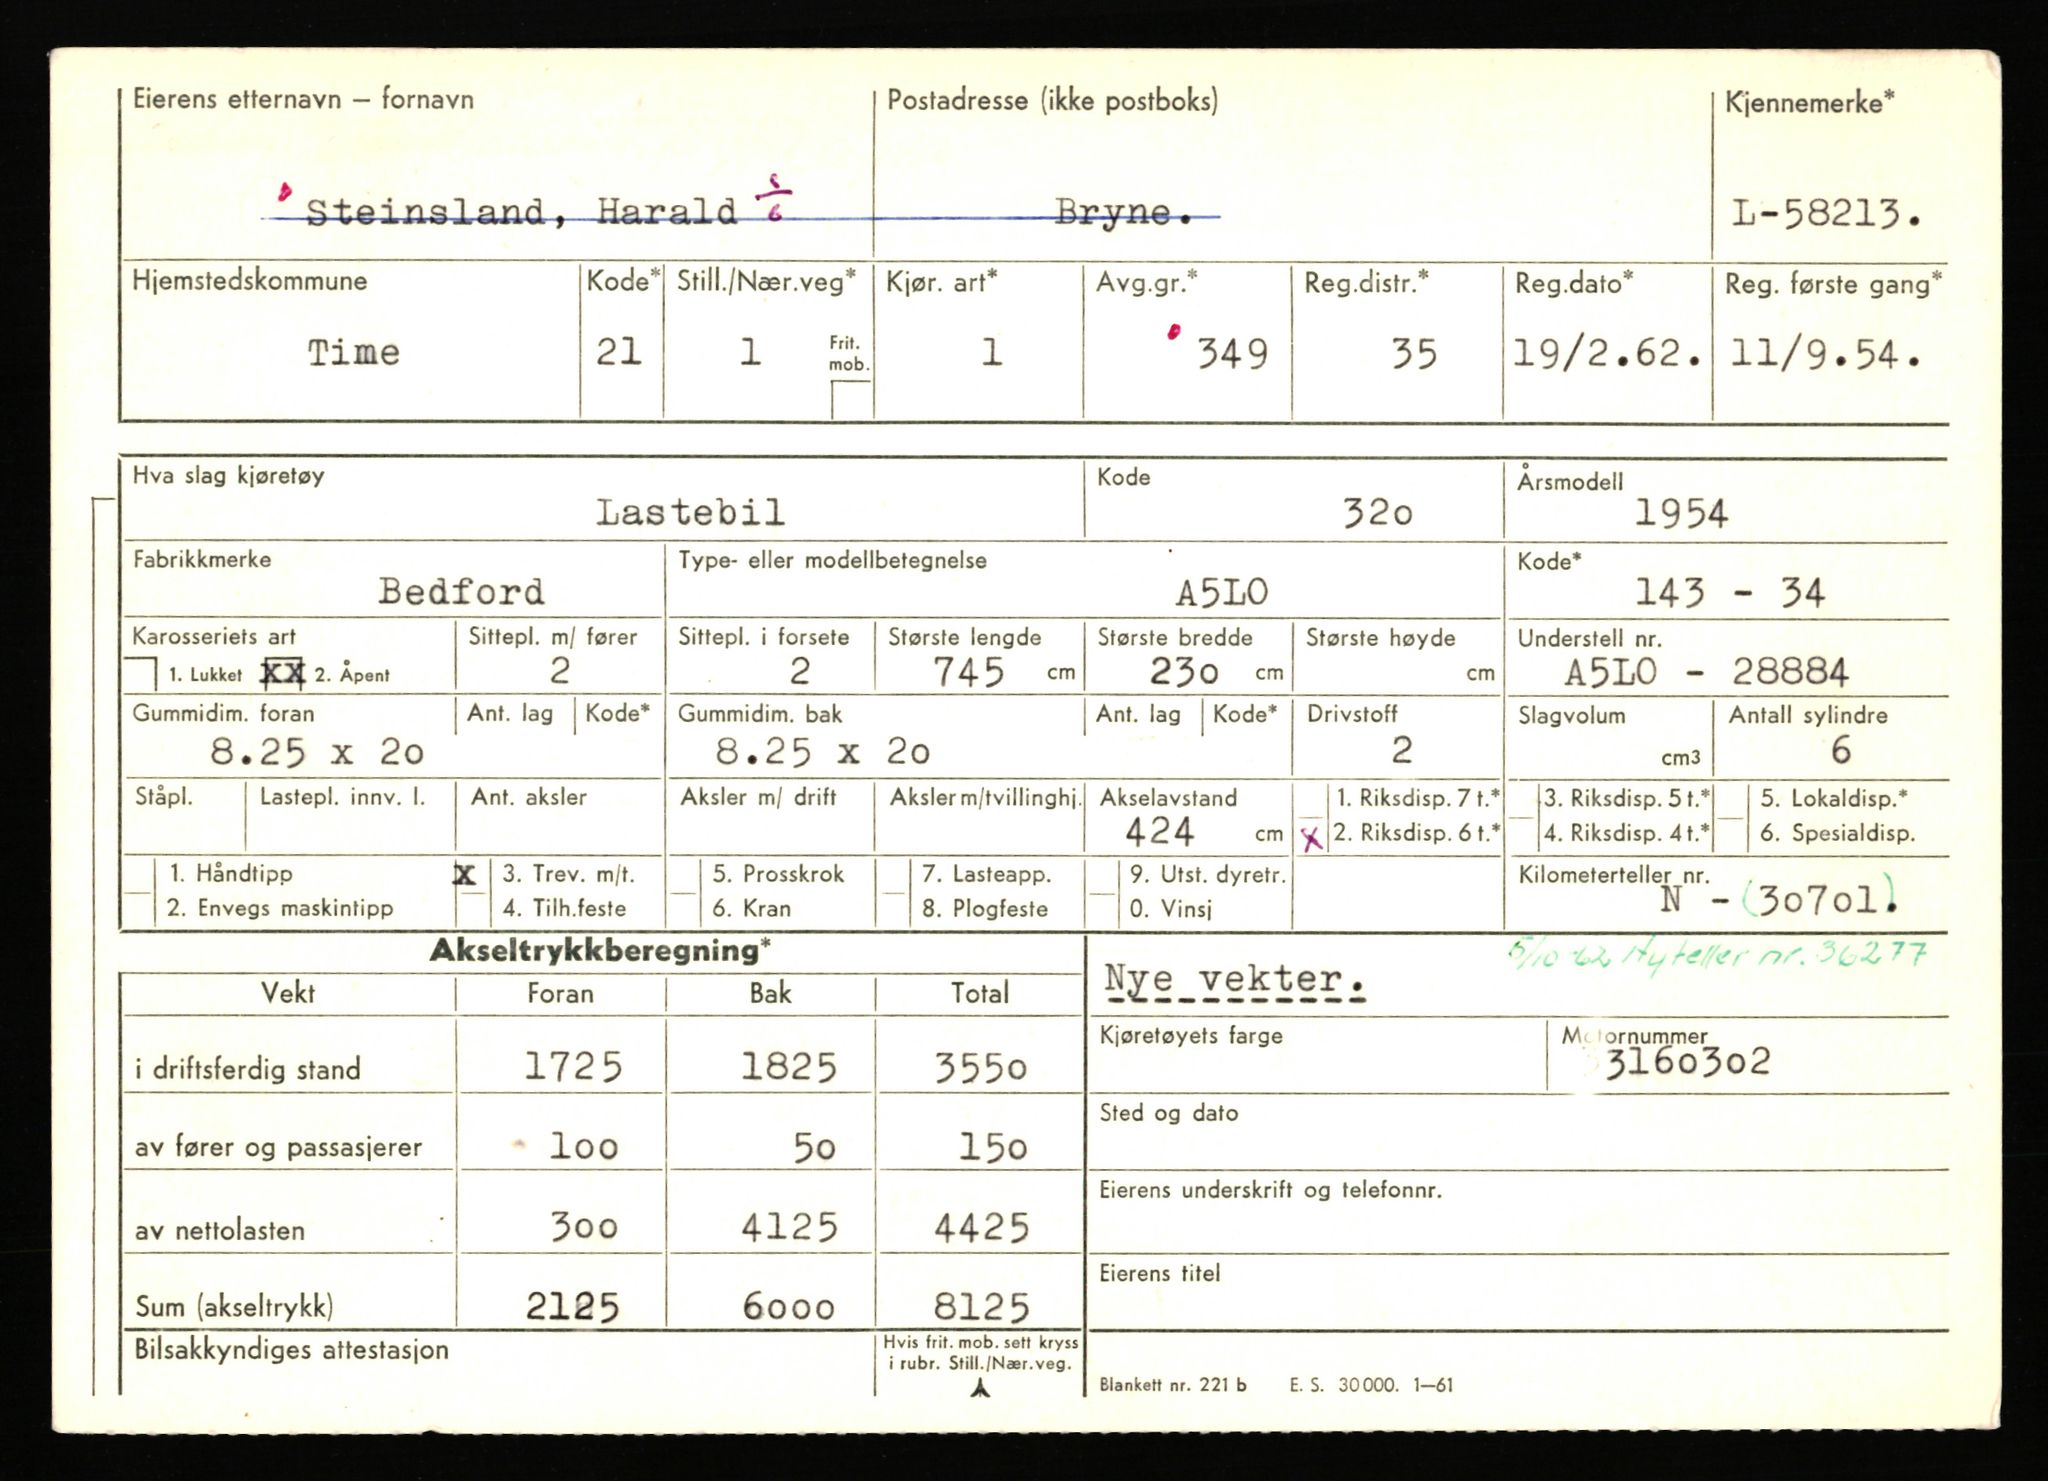 Eierens etternavn – fornavn Postadresse (ikke postboks) Kjennemerke*
Steinsland, Harald 5/6 Bryne. L-58213.
Hjemstedskommune Kode* Still./Nær.veg* Kjør. art* Avg.gr.* Reg.distr.* Reg.dato* Reg. første gang*
Time 21 1 Frit. mob. 1 349 35 19/2.62. 11/9.54.
Hva slag kjøretøy Kode Årsmodell
Lastebil 320 1954
Fabrikkmerke Type- eller modellbetegnelse Kode*
Bedford A5LO 143 - 34
Karosseriets art Sittepl. m/ fører Sittepl. i forsete Største lengde Største bredde Største høyde Understell nr.
1. Lukket XX 2. Åpent 2 2 745 cm 230 cm cm A5LO - 28884
Gummidim. foran Ant. lag Kode* Gummidim. bak Ant. lag Kode* Drivstoff Slagvolum Antall sylindre
8.25 x 20 8.25 x 20 2 cm3 6
Ståpl. Lastepl. innv. l. Ant. aksler Aksler m/ drift Aksler m/tvillinghj. Akselavstand 1. Riksdisp. 7 t.* 3. Riksdisp. 5 t.* 5. Lokaldisp.*
424 cm x 2. Riksdisp. 6 t.* 4. Riksdisp. 4 t.* 6. Spesialdisp.
1. Håndtipp X 3. Trev. m/t. 5. Prosskrok 7. Lasteapp. 9. Utst. dyretr. Kilometerteller nr.
2. Envegs maskintipp 4. Tilh.feste 6. Kran 8. Plogfeste 0. Vinsj N - (30701).
Akseltrykkberegning* 5/10-62 Ny teller nr. 36277
Vekt Foran Bak Total Nye vekter.
Kjøretøyets farge Motornummer
i driftsferdig stand 1725 1825 3550 3160302
Sted og dato
av fører og passasjerer 100 50 150
Eierens underskrift og telefonnr.
av nettolasten 300 4125 4425
Eierens titel
Sum (akseltrykk) 2125 6000 8125
Bilsakkyndiges attestasjon Hvis frit. mob. sett kryss
i rubr. Still./Nær.veg.
Blankett nr. 221 b E. S. 30 000. 1—61